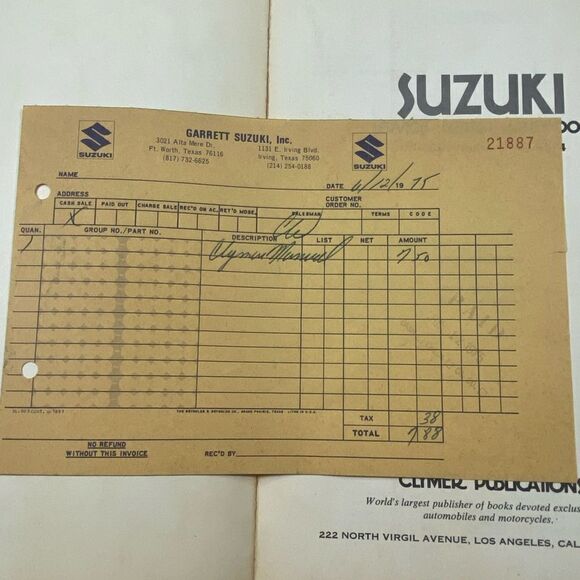 SUZUKI
GARRETT SUZUKI, Inc.
3021 Alta Mere Dr.
Ft. Worth, Texas 76116
(817) 732-6625
1131 E. Irving Blvd.
Irving, Texas 75060
(214) 254-0188
SUZUKI
SUZUKI
21887
NAME
DATE 6/12/1975
ADDRESS
CUSTOMER ORDER NO.
CASH SALE PAID OUT CHARGE SALE REC'D ON AC. RET'D MDSE. SALESMAN TERMS CODE
X
QUAN. GROUP NO./PART NO. DESCRIPTION LIST NET AMOUNT
1 Clymer Manual 7 50
PAID
TAX 38
TOTAL 7 88
NO REFUND
WITHOUT THIS INVOICE
REC'D BY
CLYMER PUBLICATIONS
World's largest publisher of books devoted exclus
automobiles and motorcycles.
222 NORTH VIRGIL AVENUE, LOS ANGELES, CAL